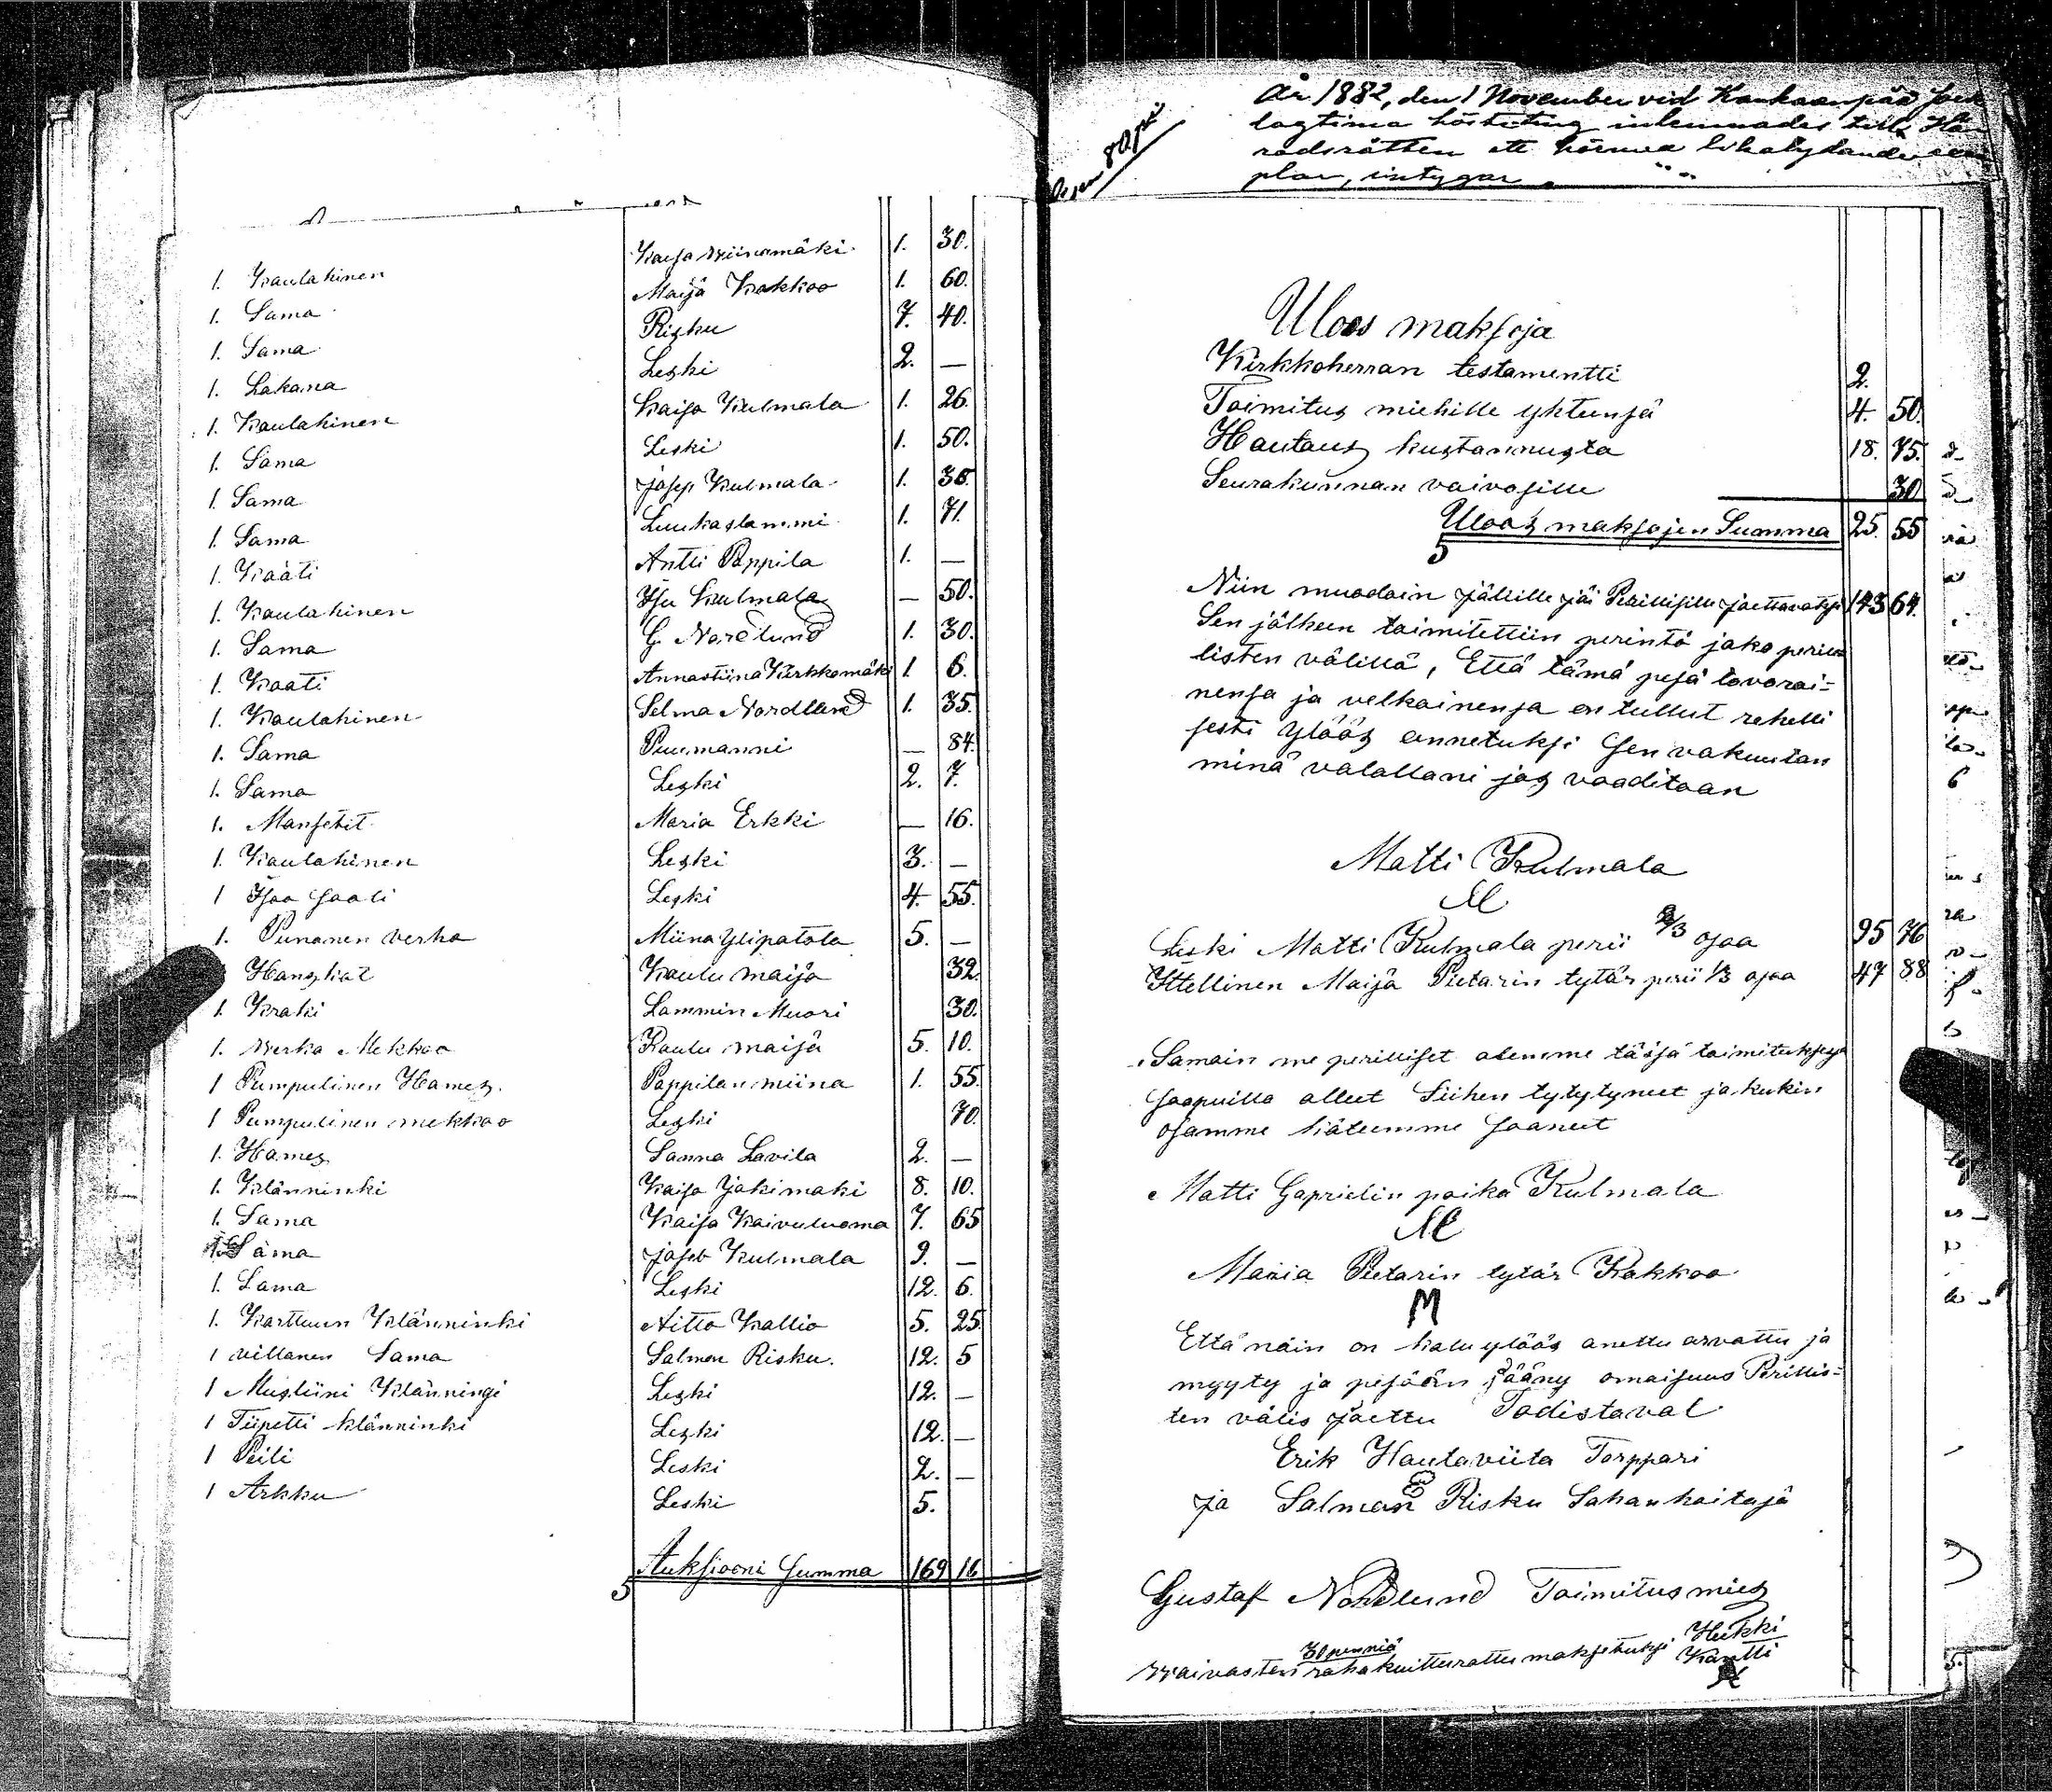 Kaisa Wiinamäki 1. 30.
1. Kaulahinen Maija Kakkoo 1. 60.
1. Sama Risku 7. 40.
1. Sama Leski 2. —
1. Lakana Kaisa Kulmala 1. 26.
1. Kaulahinen Leski 1. 50.
1. Sama Josep Kulmala 1. 35.
1. Sama Luukaslammi 1. 71.
1. Sama Antti Pappila 1. —
1. Kaati Isu Kulmala — 50.
1. Kaulahinen G. Nordlund 1. 30.
1. Sama Annastiina Kirkkomäki 1 6.
1. Kaati Selma Nordlund 1. 35.
1. Kaulahinen Puumanni — 84.
1. Sama Leski 2. 7.
1. Sama Maria Erkki — 16.
1. Mansetit Leski 3. —
1. Kaulahinen Leski 4. 55.
1 Isoo saali Miina Ylipatola 5. —
1. Punanen verka Kaulu maija 32.
Hanskat Lammin Muori 30.
1. Kraki Kaulu maija 5. 10.
1. Werka Mekkoo Pappilan miina 1. 55.
1 Pumpulinen Hames. Leski 70.
1 Pumpulinen mekkoo Sanna Lavila 2. —
1. Hames Kaisa Jakimaki 8. 10.
1. Klänninki Kaisa Kaivuluoma 7. 65
1. Sama Joseb Kulmala 9. —
Sama Leski 12. 6.
1. Sama Aitto Kallio 5. 25
1. Karttuun Klänninki Salmon Risku. 12. 5
1 villanen Sama Leski 12. —
1 Musliini Klänningi Leski 12. —
1 Tiipetti klänninki Leski 2. —
1 Peili Leski 5.
1 Arkku
Auksiooni summa 169 16
År 1882, den 1 November vid Kankaanpää
lagtima hösteting inlemnades till Hä-
radsrätten ett härmed likalydande exem
plar, intygar
Uloos maksoja
Kirkkoherran testamentti 2.
Toimitus miehille yhteensä 4. 50.
Hautaus kustannusta 18. 75.
Seurakunnan vaivasille 30
Uloos maksojen Summa 25. 55
Niin muodoin jälille jäi Perillisille jaettavaksi 143 64.
Sen jälkeen toimitettiin perintö jako peril
listen välillä, Että tämä pesä tavarai-
nensa ja velkainensa on tullut rehelli
sesti ylöös annetuksi sen vakuutan
minä valallani jos vaaditaan
Matti Kulmala
Leski Matti Kulmala perii 2/3 osaa 95 76
Ittellinen Maija Pietarin tytär perii 1/3 osaa 47 88
Samain me perilliset olemme tässä toimituksessa
saapuilla olleet Siihen tytytyneet ja kukin
osamme käteemme saaneet
Matti Gaprielin poika Kulmala
Maria Pietarin tytär Kakkoo
M
Että näin on kalu ylöös anettu arvattu ja
myyty ja pesään jääny omaisuus Perillis-
ten välis jaettu Todistavat
Erik Hautaviita Torppari
ja Salman Risku Sahanhoitaja
Gustaf Nordlund Toimitus mies
30 penniä Heikki
Waivasten raha kuitterattu maksetuksi Kantti